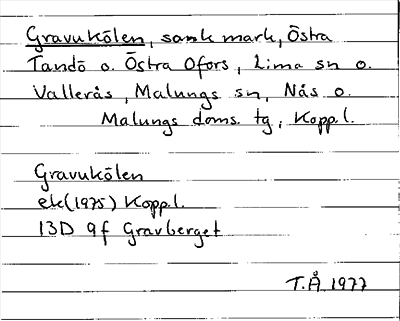 Gravukölen, sank mark, Östra
Tandö o. Östra Ofors, Lima sn o.
Vallerås, Malungs sn, Nås o.
Malungs doms. tg, Koppl.
Gravukölen
ek(1975) Koppl.
13D 9f Gravberget
T.Å. 1977